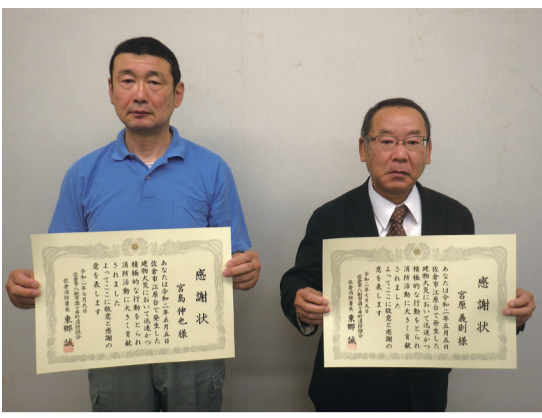 感謝状
宮島伸也様
あなたは令和二年五月五日
佐倉市江原台で発生した
建物火災において迅速かつ
積極的な行動をとられ
消防活動に大きく貢献
されました
よってここに敬意と感謝の
意を表します
令和二年七月九日
佐倉市八街市酒々井町消防組合
佐倉消防署長 東郷 誠
感謝状
宮原義則様
あなたは令和二年五月五日
佐倉市江原台で発生した
建物火災において迅速かつ
積極的な行動をとられ
消防活動に大きく貢献
されました
よってここに敬意と感謝の
意を表します
令和二年七月九日
佐倉市八街市酒々井町消防組合
佐倉消防署長 東郷 誠